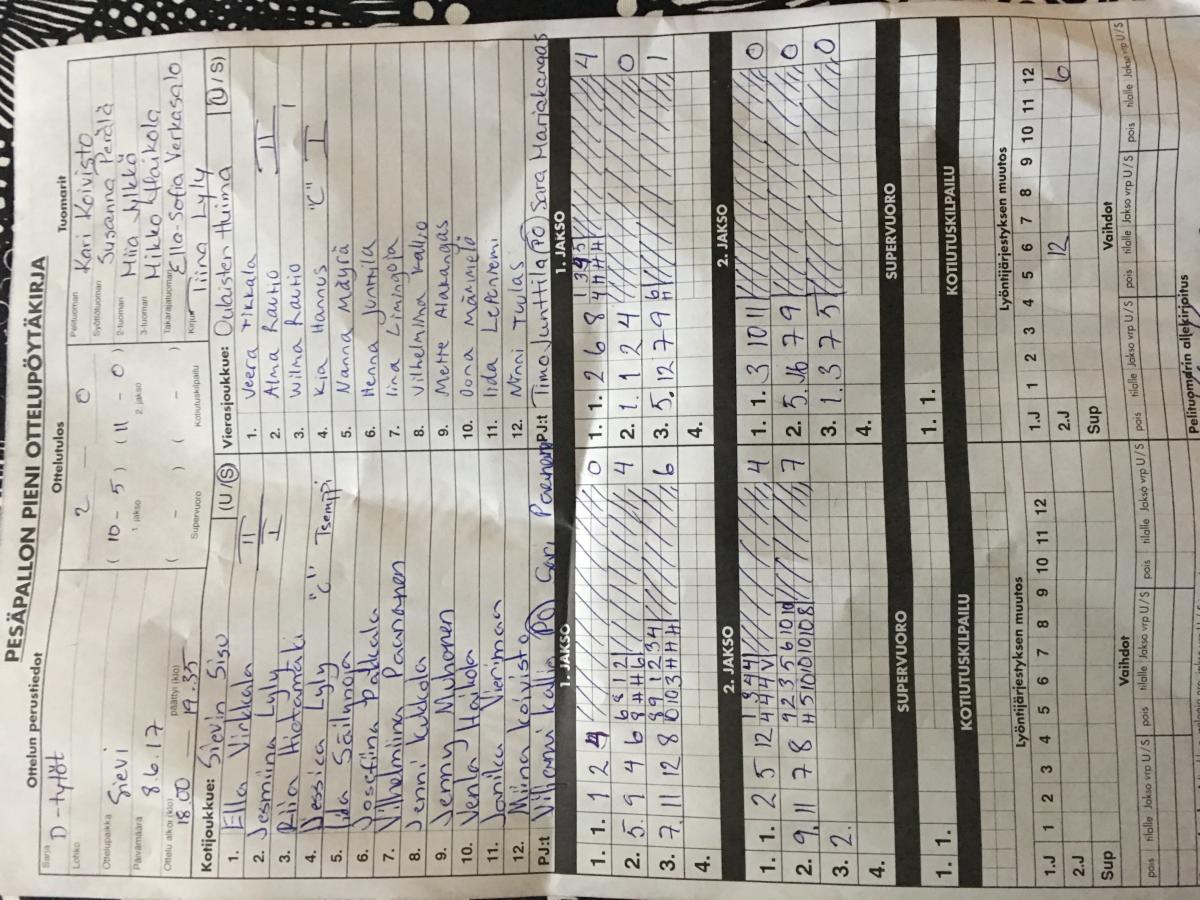 PESÄPALLON PIENI OTTELUPÖYTÄKIRJA
Ottelun perustiedot
Sarja D-tytöt
Lohko
Ottelupaikka Sievi
Päivämäärä 8.6.17
Ottelu alkoi (klo) 18.00 päättyi (klo) 19.35
Ottelutulos
2 – 0
( 10 – 5 ) ( 11 – 0 )
1. jakso 2. jakso
( – ) ( – )
Supervuoro Kotiutuskilpailu
Tuomarit
Pelituomari Kari Koivisto
Syöttötuomari Susanna Perälä
2-tuomari Miia
3-tuomari Mikko
Takarajatuomari Ella-Sofia Verkasalo
Kirjuri Tiina Lyly
Kotijoukkue: Sievin Sisu (U / S)
1. Ella Vinkkala II
2. Jesmiina Lyly I
3. Riia Hietamäki
4. Jessica Lyly "C" Tsemppi
5. Iida Säilynoja
6. Josefiina Pakkala
7. Vilhelmiina Paananen
8. Jenni Kukkola
9. Jenny Muhonen
10. Venla Haikola
11. Janika Vierimaa
12. Miina Koivisto
PJ:t Viljami Kallio (PO) Sari Paananen
Vierasjoukkue: Oulaisten Huima (U / S)
1. Veera Tikkala
2. Alma Rautio II
3. Wilma Rautio I
4. Kia Hannus "C" I
5. Nanna Mäyrä
6. Henna Junttila
7. Iina Limingoja
8. Vilhelmiina Kallio
9. Mette Alakangas
10. Oona Männelö
11. Iida Leppäniemi
12. Minni Tuulas
PJ:t Timo Junttila (PO) Sara Marjakangas
1. JAKSO
1. 1. 1 2 4 0
2. 5. 9 4 6 4
3. 7. 11 12 8 6
4.
1. JAKSO
1. 1. 2 6 8 4
2. 1. 1 2 4 0
3. 5. 12 7 9 1
4.
2. JAKSO
1. 1. 2 5 12 4
2. 9. 11 7 8 7
3. 2.
4.
2. JAKSO
1. 1. 3 10 11 0
2. 5. 7 9 0
3. 1. 3 7 5 0
4.
SUPERVUORO
1. 1.
SUPERVUORO
1. 1.
KOTIUTUSKILPAILU
KOTIUTUSKILPAILU
Lyöntijärjestyksen muutos
1.J 1 2 3 4 5 6 7 8 9 10 11 12
2.J
Sup
Lyöntijärjestyksen muutos
1.J 1 2 3 4 5 6 7 8 9 10 11 12
2.J 12 6
Sup
Vaihdot
pois tilalle Jakso vrp U/S pois tilalle Jakso vrp U/S pois tilalle Jakso vrp U/S
Vaihdot
pois tilalle Jakso vrp U/S pois tilalle Jakso vrp U/S pois tilalle Jakso vrp U/S
Pelituomarin allekirjoitus